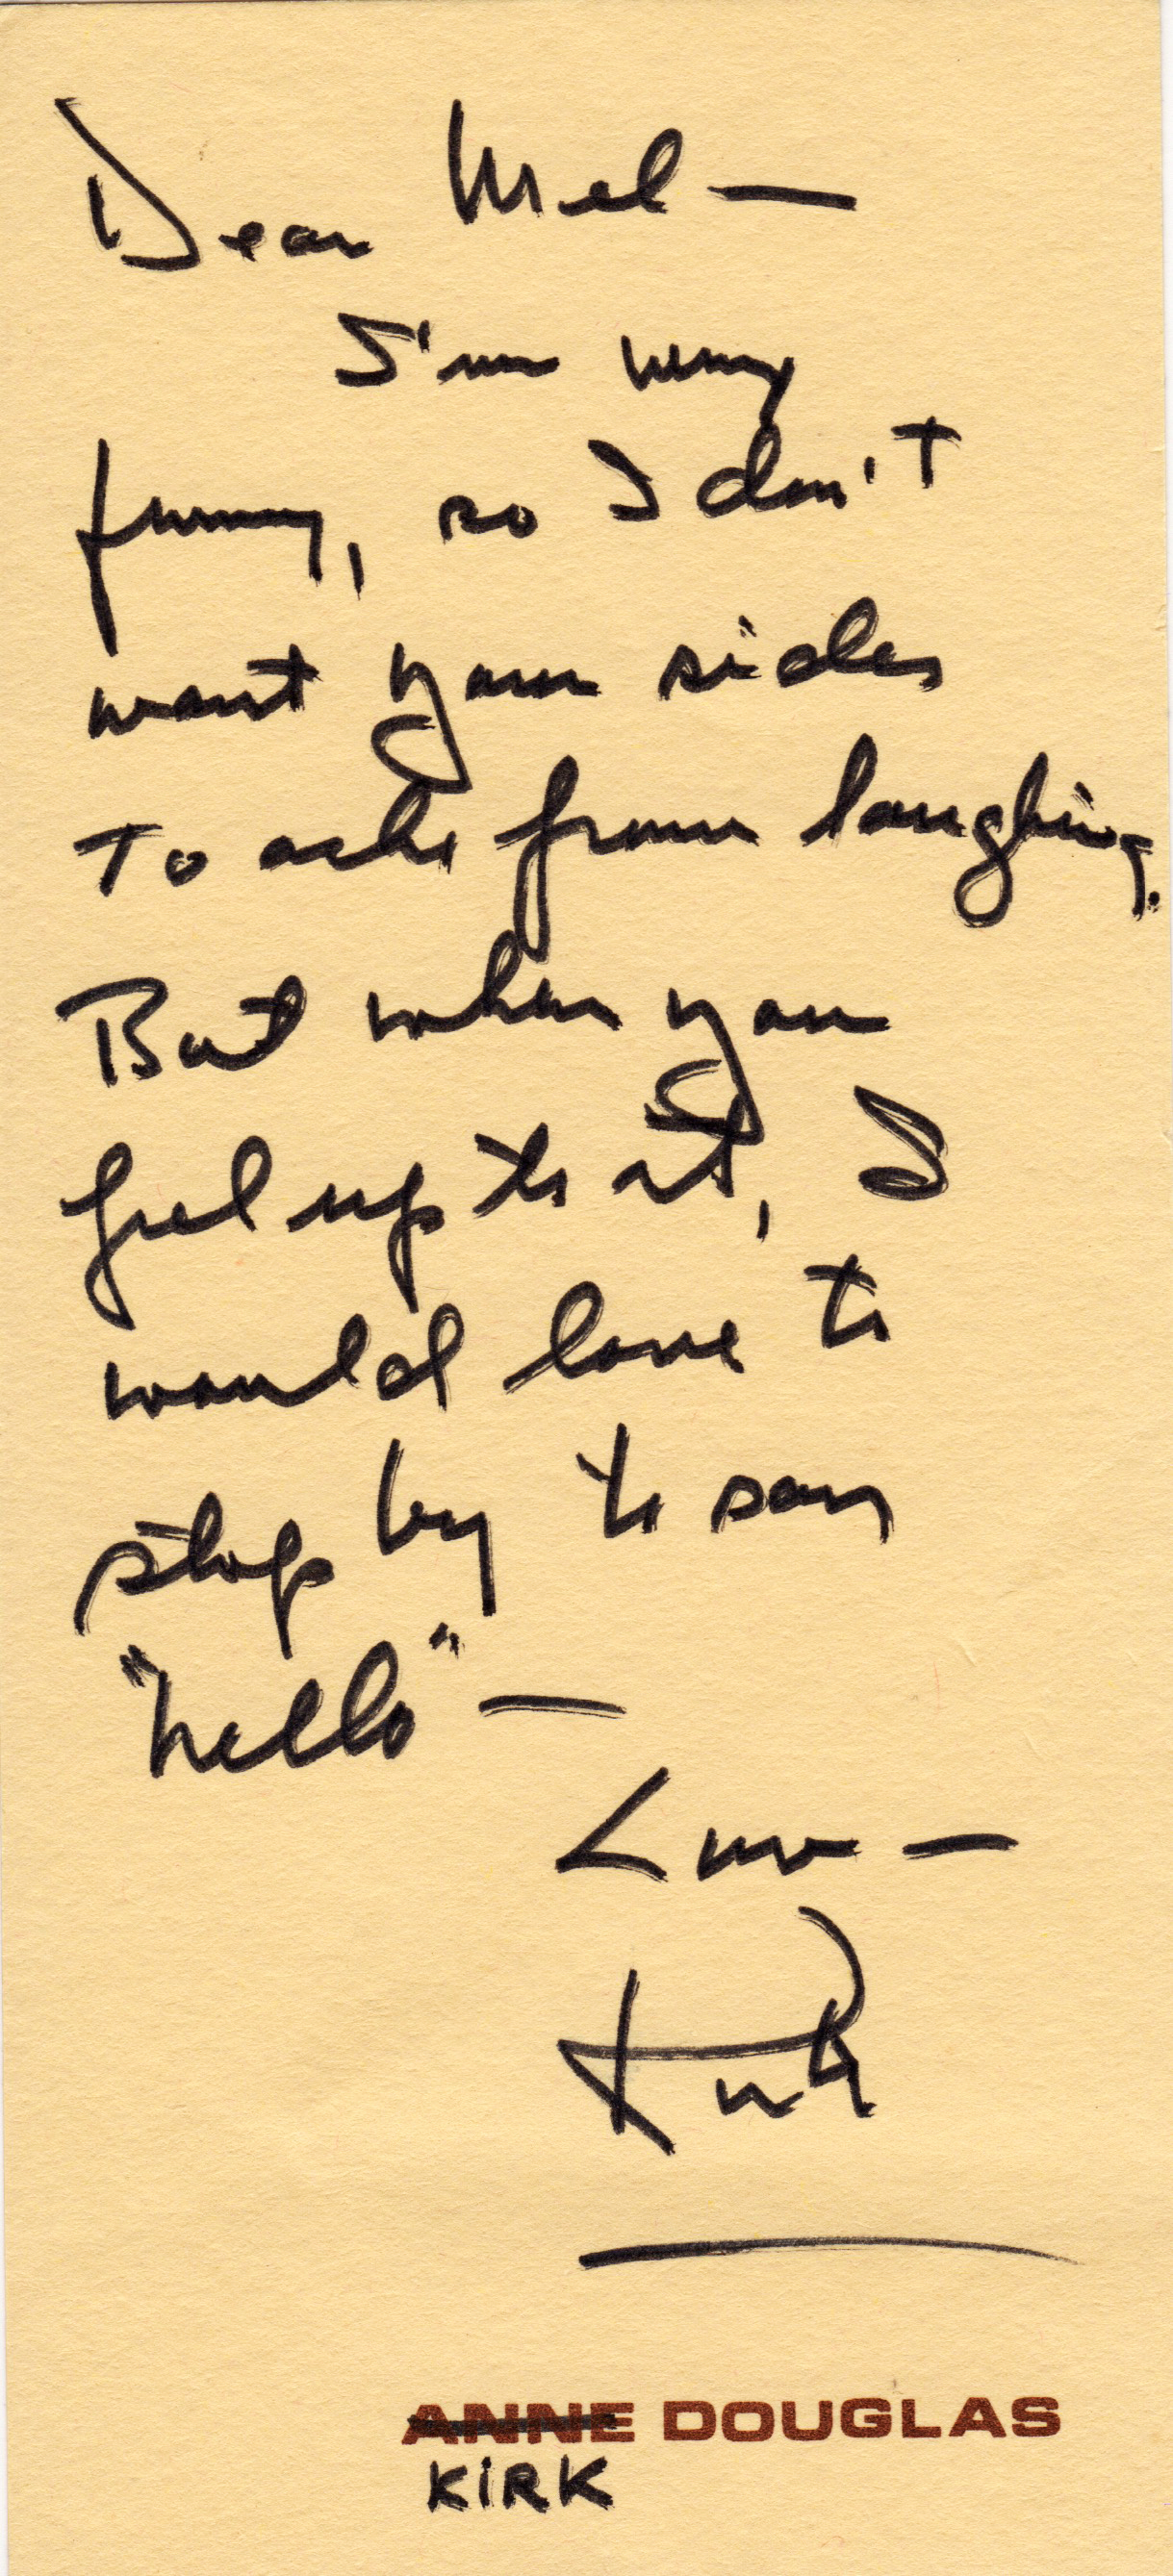 Dear Mel —
I'm very
funny, so I don't
want your sides
To ache from laughing.
But when you
feel up to it, I
would love to
stop by to say
"hello" —
Luv —
Kirk
ANNE DOUGLAS
KiRK